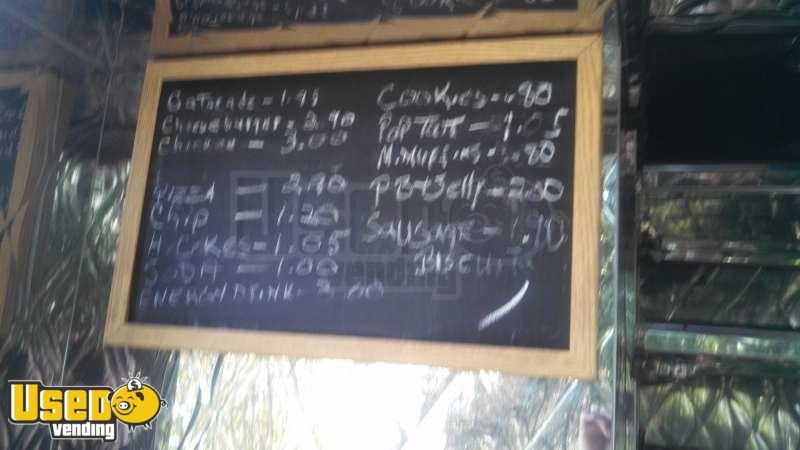 Gatorade = 1.95
Cheeseburger = 2.90
Chicken = 3.00
Pizza = 2.90
Chip = 1.20
H. CAKES = 1.05
SODA = 1.00
ENERGY DRINK - 3.00
COOKies = .80
POPTART = 1.05
M. MUFFINS = .80
PB & Jelly = 2.00
SAUSAGE = 1.90
BISCUIT
USED
vending
USED
vending